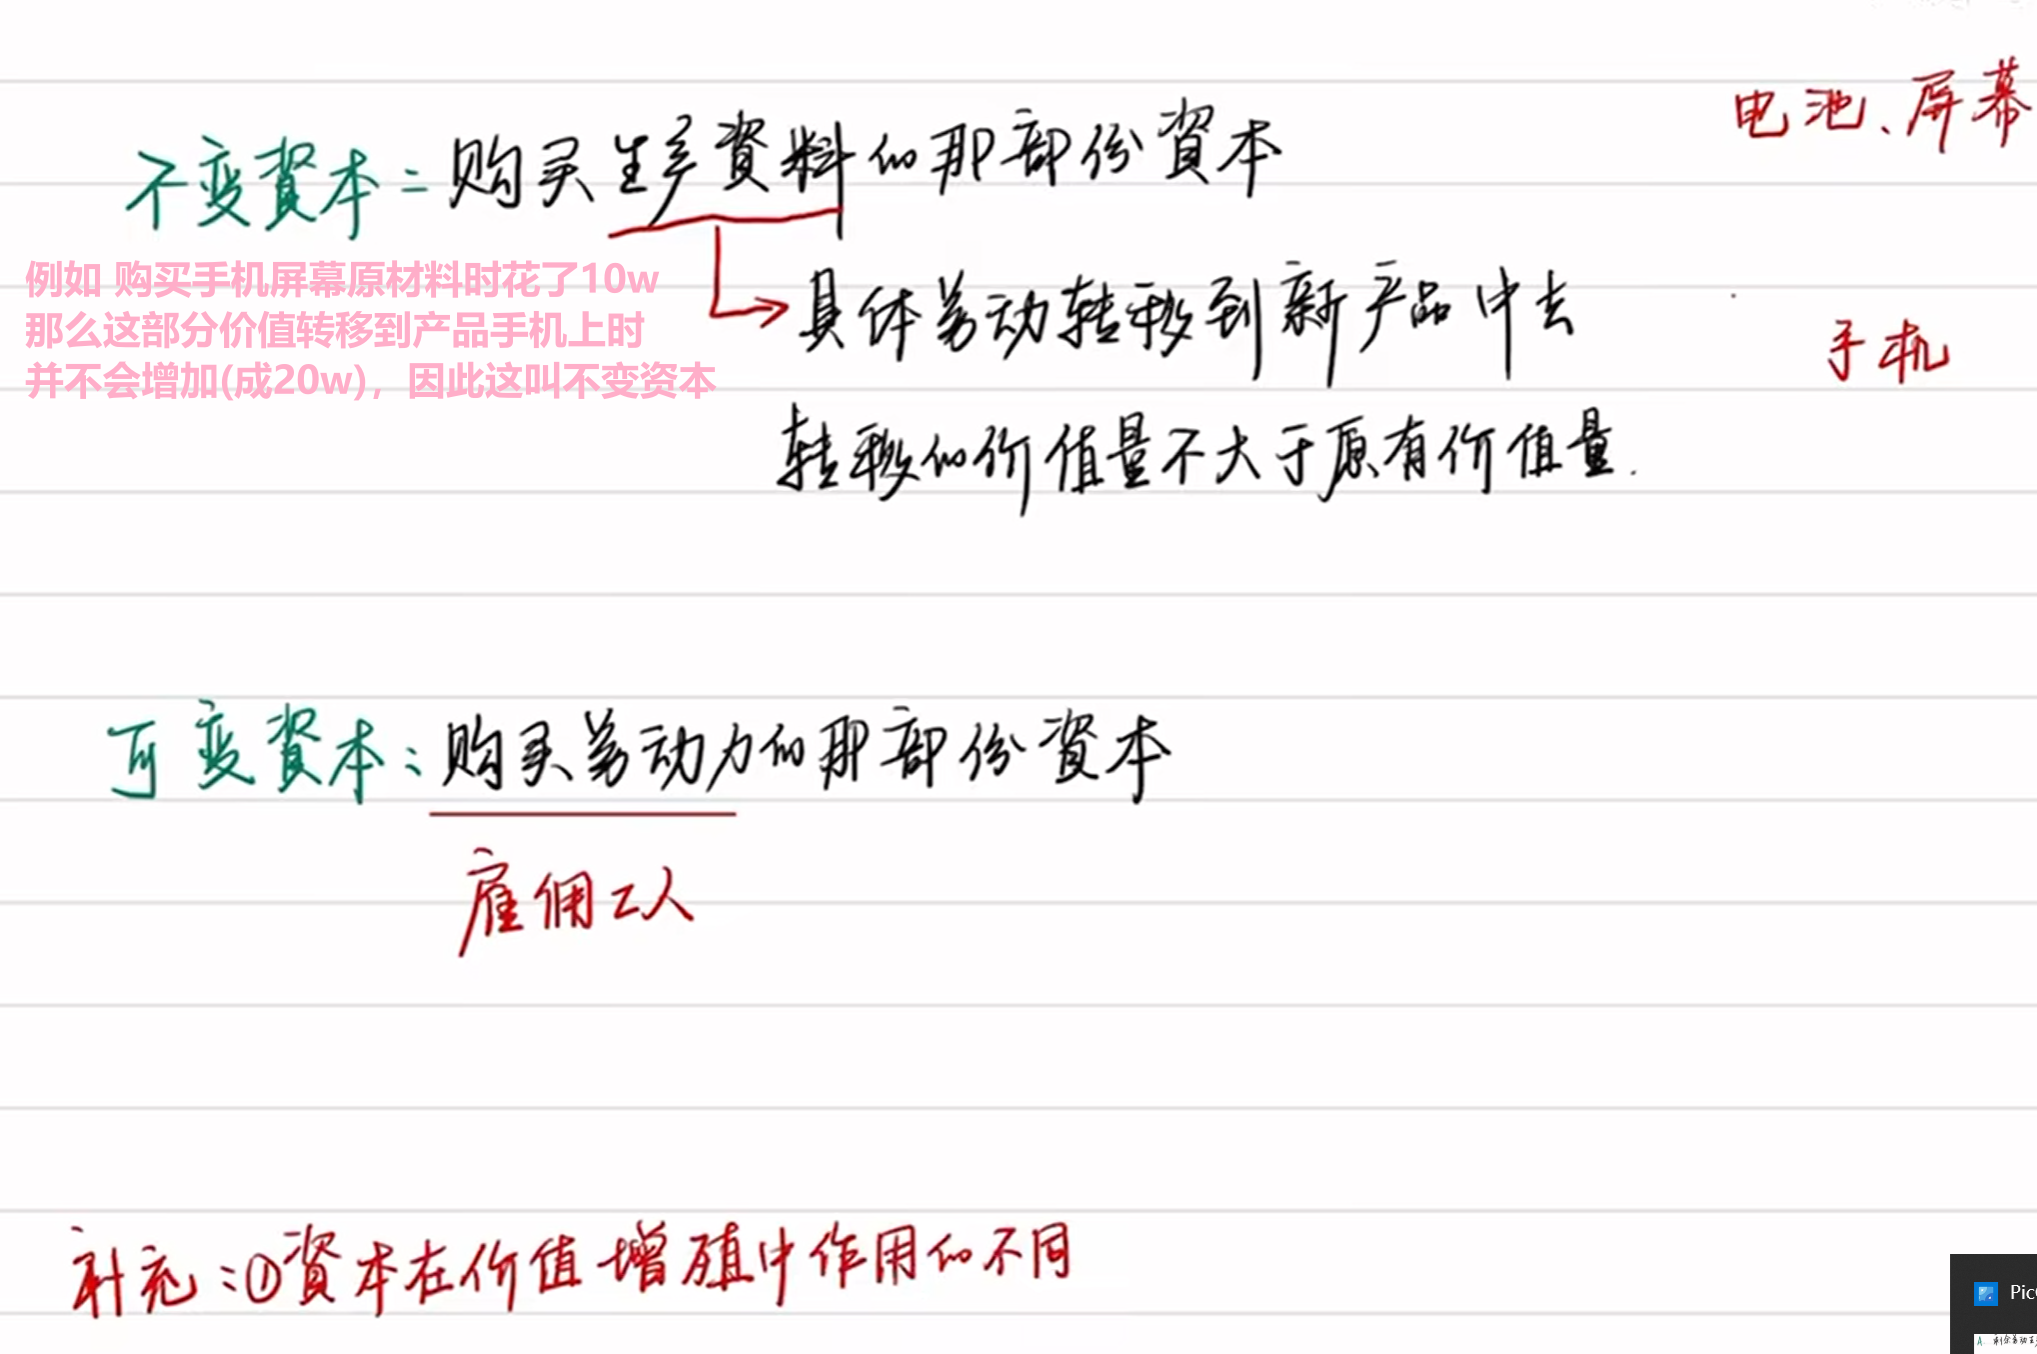 电池、屏幕
不变資本=购买生产資料的那部份資本
例如 购买手机屏幕原材料时花了10w
那么这部分价值转移到产品手机上时
并不会增加(成20w)，因此这叫不变资本
具体劳动转移到新产品中去
手机
转移的价值量不大于原有价值量.
可变資本:购买劳动力的那部份資本
雇佣工人
补充:①資本在价值增殖中作用的不同